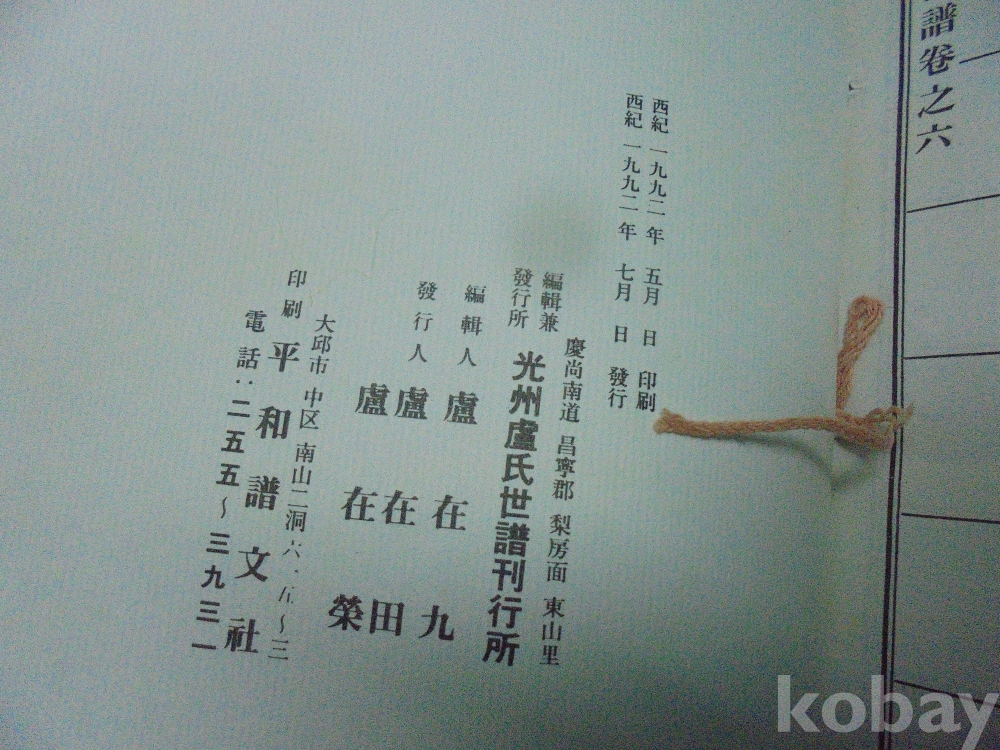 譜卷之六
西紀 一九九二年 五月 日 印刷
西紀 一九九二年 七月 日 發行
慶尚南道 昌寧郡 梨房面 東山里
編輯兼
發行所 光州盧氏世譜刊行所
編輯人 盧在九
發行人 盧在田
盧在榮
大邱市 中区 南山二洞 六.五~三
印刷 平和譜文社
電話:二五五~三九三一
kobay